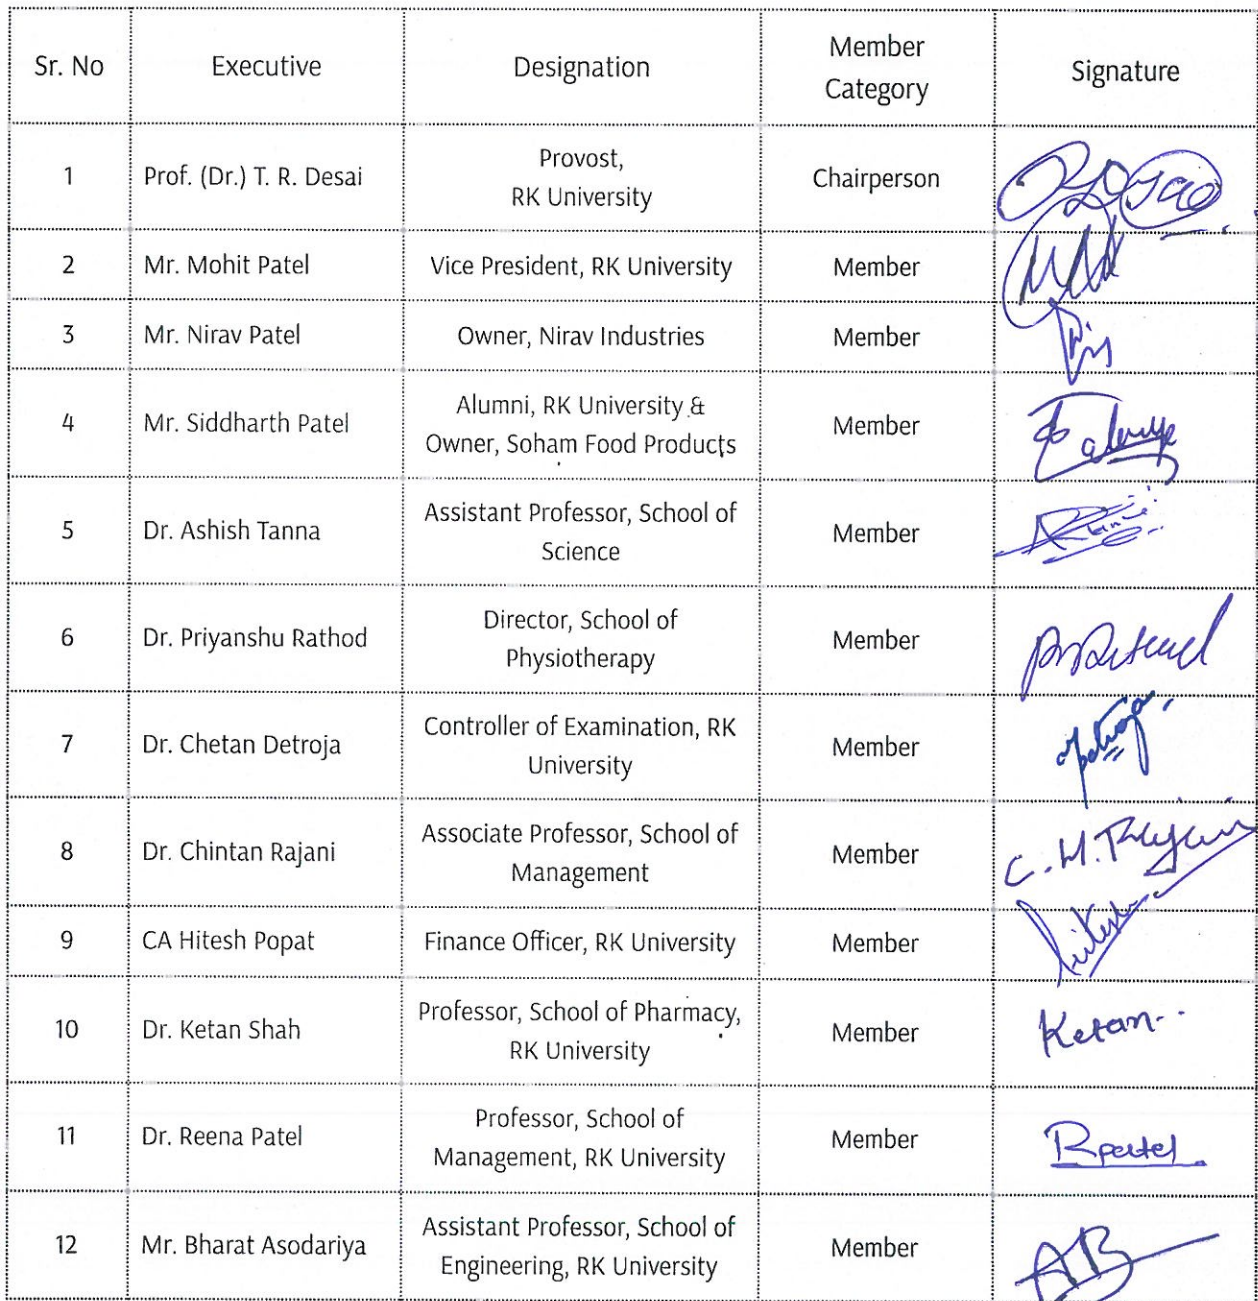 Sr. No Executive Designation Member Category Signature
1 Prof. (Dr.) T. R. Desai Provost, RK University Chairperson
2 Mr. Mohit Patel Vice President, RK University Member
3 Mr. Nirav Patel Owner, Nirav Industries Member
4 Mr. Siddharth Patel Alumni, RK University & Owner, Soham Food Products Member
5 Dr. Ashish Tanna Assistant Professor, School of Science Member
6 Dr. Priyanshu Rathod Director, School of Physiotherapy Member
7 Dr. Chetan Detroja Controller of Examination, RK University Member
8 Dr. Chintan Rajani Associate Professor, School of Management Member C. M. Rajani
9 CA Hitesh Popat Finance Officer, RK University Member Hitesh
10 Dr. Ketan Shah Professor, School of Pharmacy, RK University Member Ketan
11 Dr. Reena Patel Professor, School of Management, RK University Member Rpatel
12 Mr. Bharat Asodariya Assistant Professor, School of Engineering, RK University Member AB